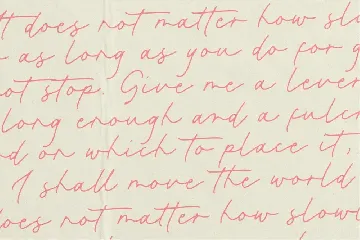 It does not matter how slo
as long as you do for g
not stop. Give me a lever
long enough and a fulcr
nd on which to place it,
I shall move the world
does not matter how slowl